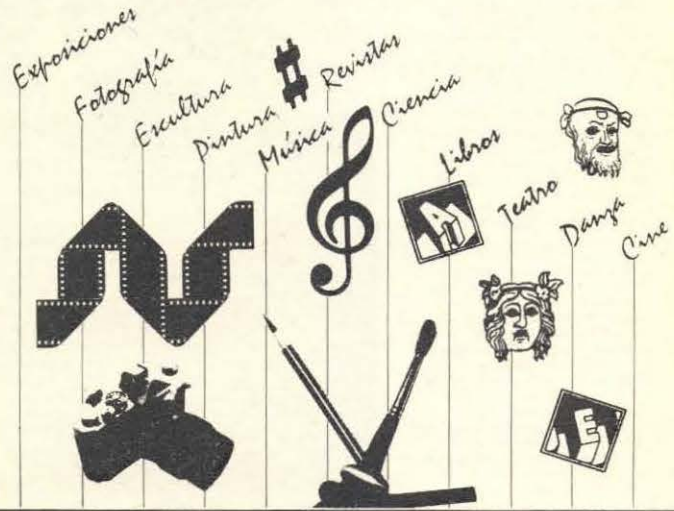 Exposiciones
Fotografía
Escultura
Pintura
Música
Revistas
Ciencia
Libros
Teatro
Danza
Cine